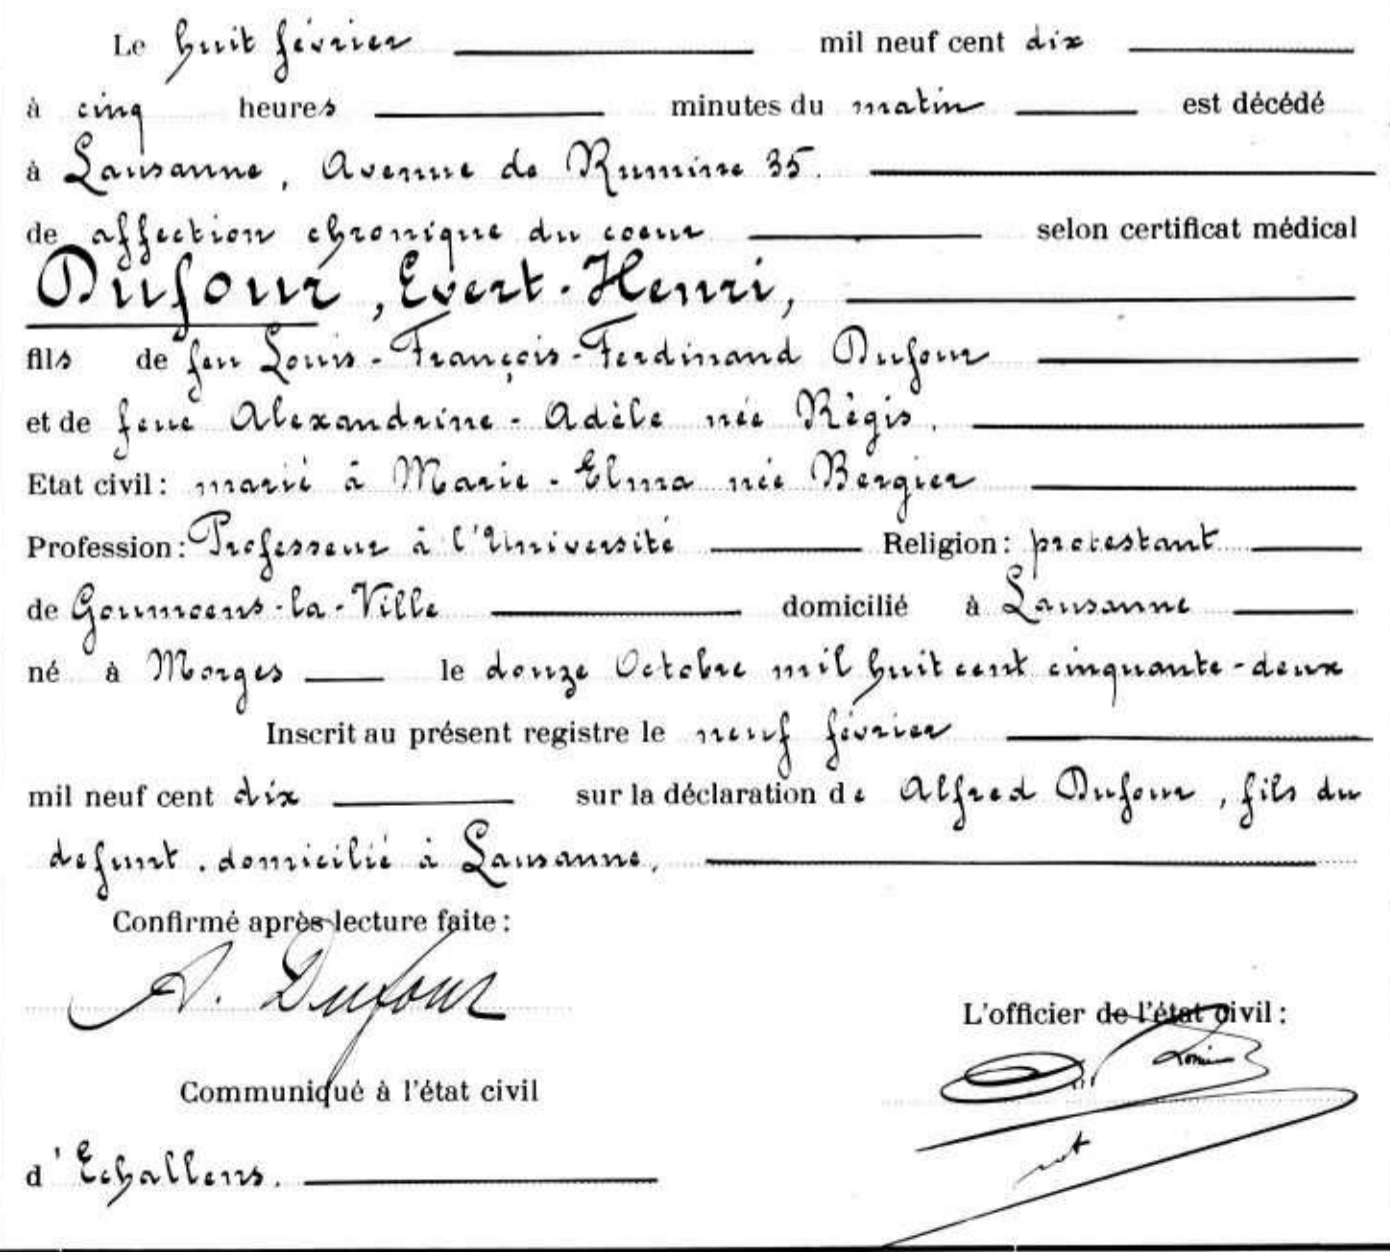 Le huit février mil neuf cent dix
à cinq heures minutes du matin est décédé
à Lausanne, Avenue de Rumine 35.
de affection chronique du coeur selon certificat médical
Dufour, Evert-Henri,
fils de feu Louis-François-Ferdinand Dufour
et de feue Alexandrine-Adèle née Régis.
Etat civil: marié à Marie-Elma née Bergier
Profession: Professeur à l'Université Religion: protestant
de Goumoens-la-Ville domicilié à Lausanne
né à Morges le douze Octobre mil huit cent cinquante-deux
Inscrit au présent registre le neuf février
mil neuf cent dix sur la déclaration de Alfred Dufour, fils du
defunt. domicilié à Lausanne,
Confirmé après lecture faite:
A. Dufour
L'officier de l'état civil:
Communiqué à l'état civil
d'Echallens.